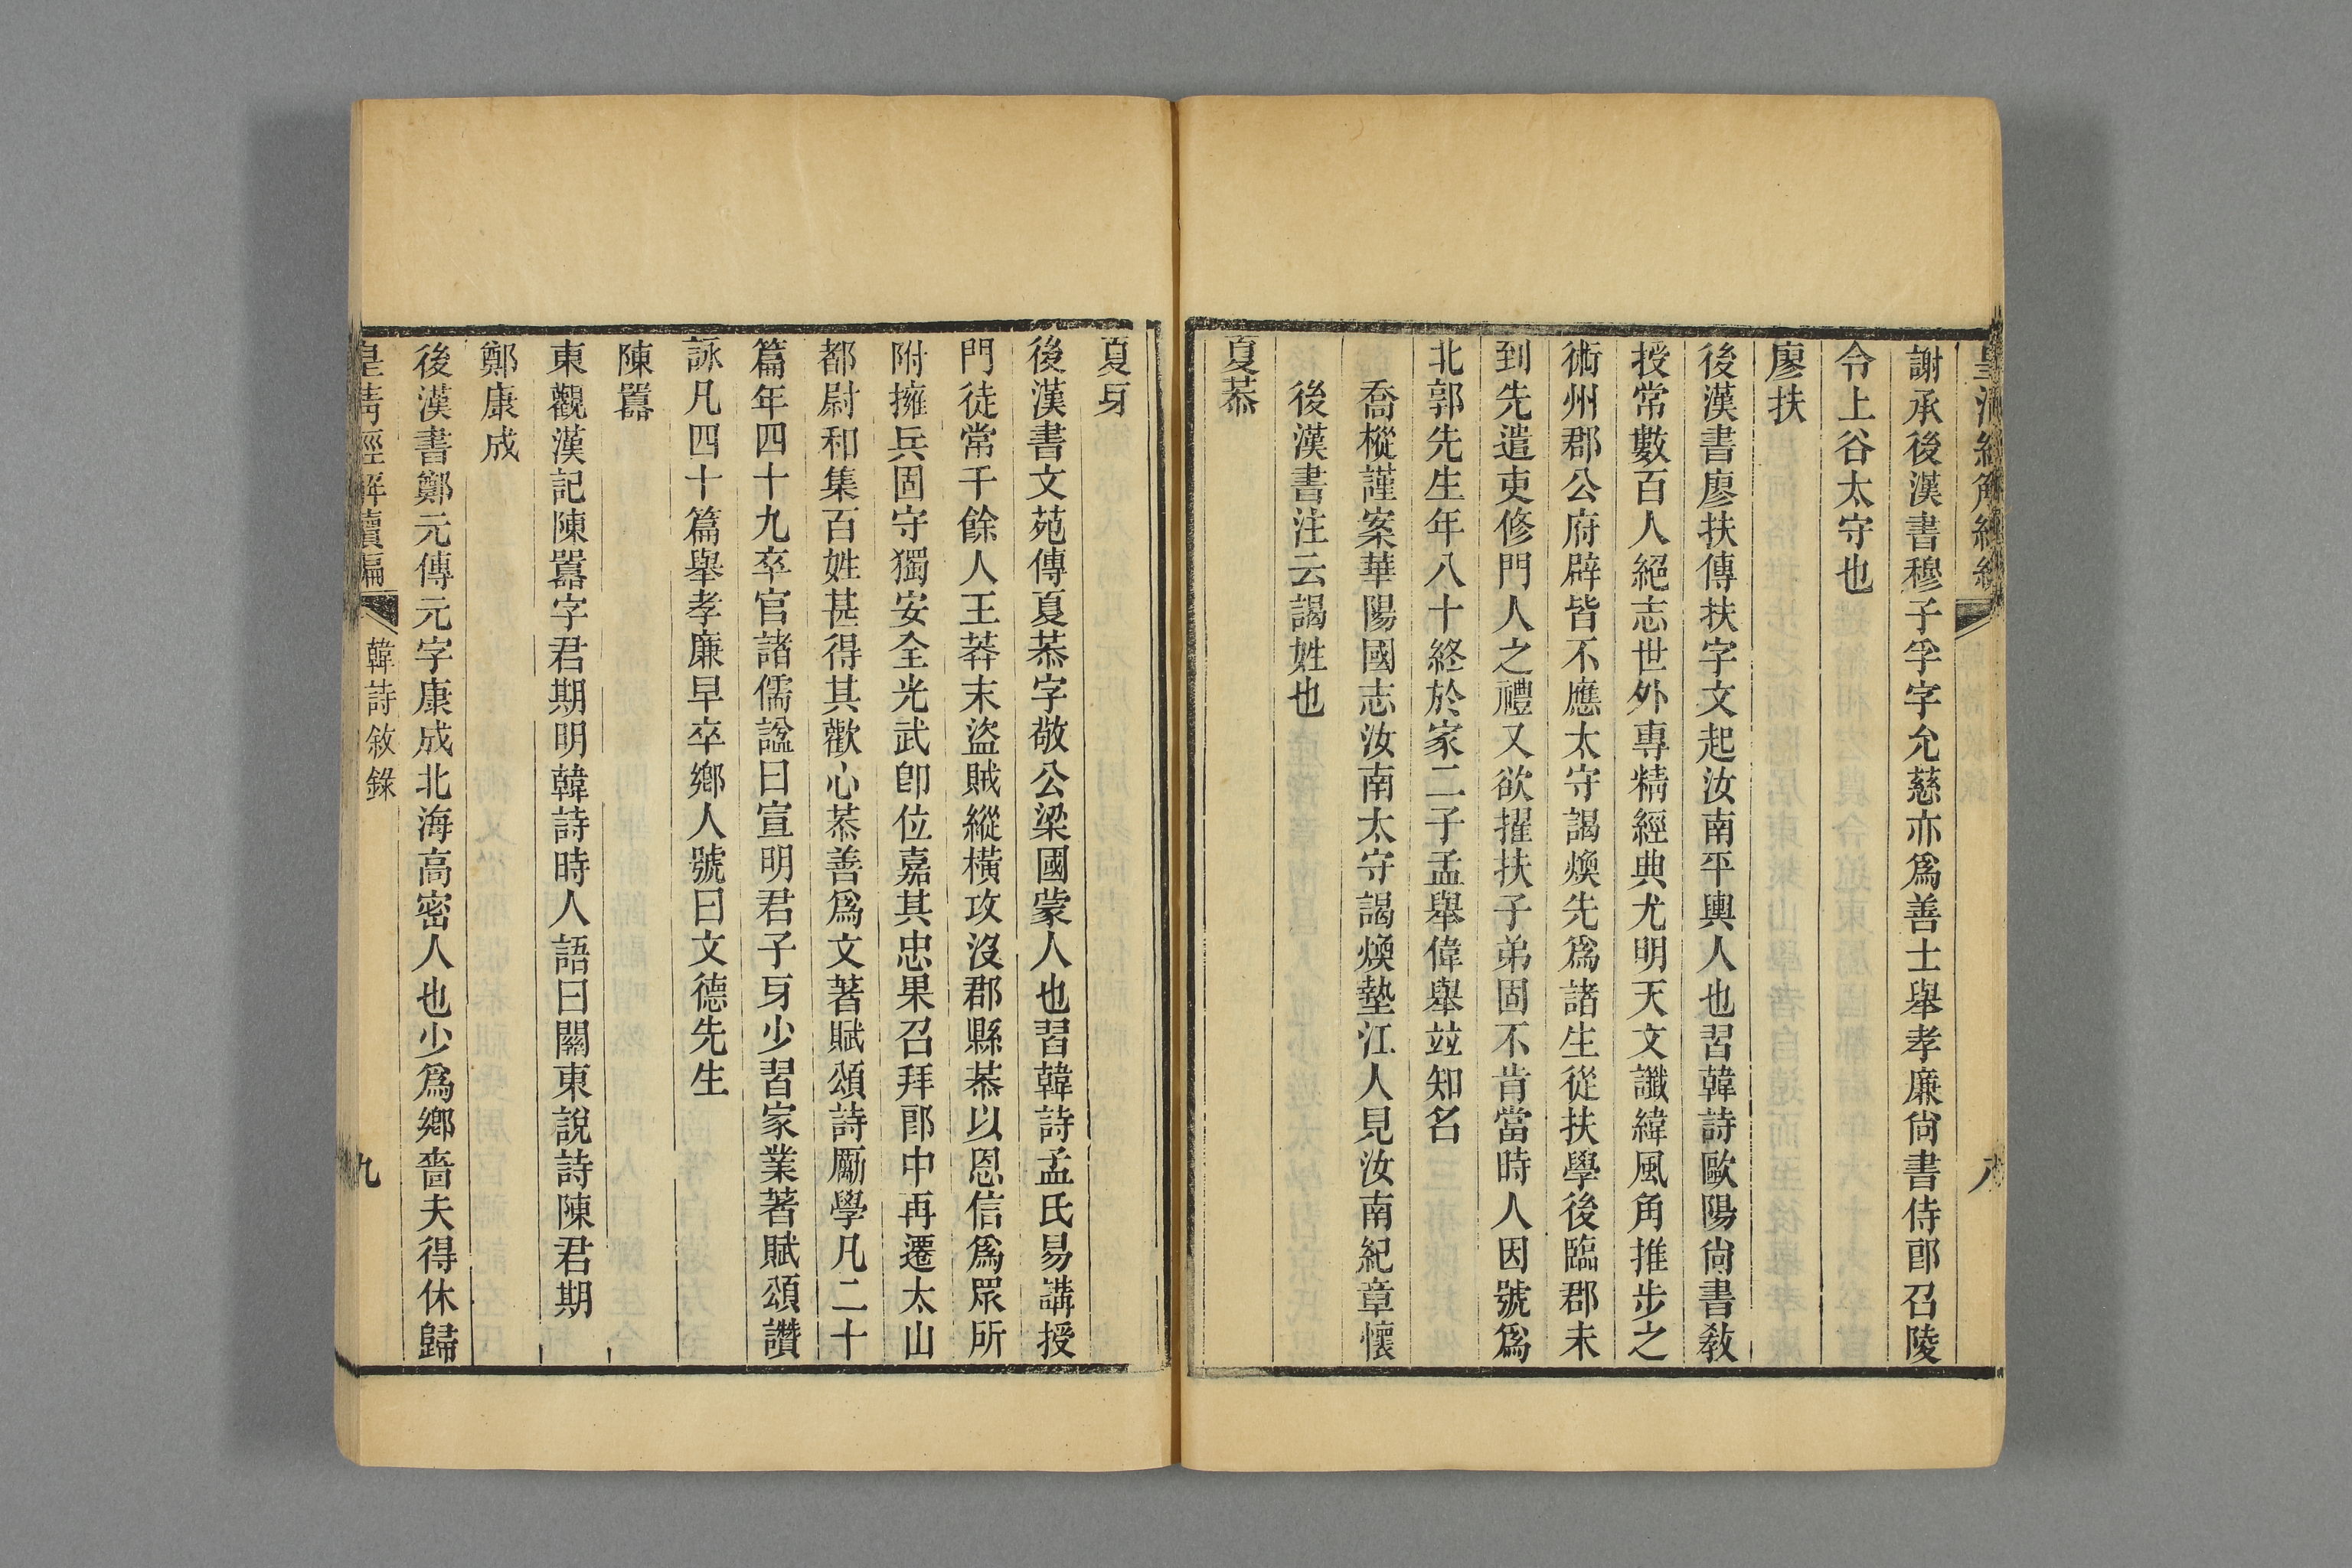 謝承後漢書穆子孚字允慈亦爲善士舉孝廉尙書侍郎召陵
令上谷太守也
廖扶
後漢書廖扶傳扶字文起汝南平輿人也習韓詩歐陽尙書敎
授常數百人絕志世外專精經典尤明天文讖緯風角推步之
術州郡公府辟皆不應太守謁煥先爲諸生從扶學後臨郡未
到先遣吏修門人之禮又欲擢扶子弟固不肯當時人因號爲
北郭先生年八十終於家二子孟舉偉舉竝知名
喬樅謹案華陽國志汝南太守謁煥墊江人見汝南紀章懷
後漢書注云謁姓也
夏恭
夏牙
後漢書文苑傳夏恭字敬公梁國蒙人也習韓詩孟氏易講授
門徒常千餘人王莽末盜賊縱橫攻沒郡縣恭以恩信爲眾所
附擁兵固守獨安全光武卽位嘉其忠果召拜郎中再遷太山
都尉和集百姓甚得其歡心恭善爲文著賦頌詩勵學凡二十
篇年四十九卒官諸儒諡曰宣明君子牙少習家業著賦頌讚
詠凡四十篇舉孝廉早卒鄉人號曰文德先生
陳囂
東觀漢記陳囂字君期明韓詩時人語曰關東說詩陳君期
鄭康成
後漢書鄭元傳元字康成北海高密人也少爲鄉嗇夫得休歸
皇淸經解續編 韓詩敘錄 九